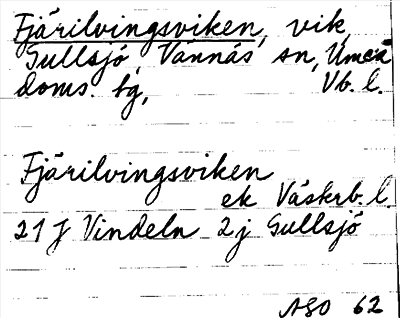 Fjärilvingsviken, vik,
Gullsjö, Vännäs sn, Umeå
doms. tg, Vb. l.
Fjärilvingsviken
ek Väskrb. l.
21 J Vindeln 2 j Gullsjö
ASO 62